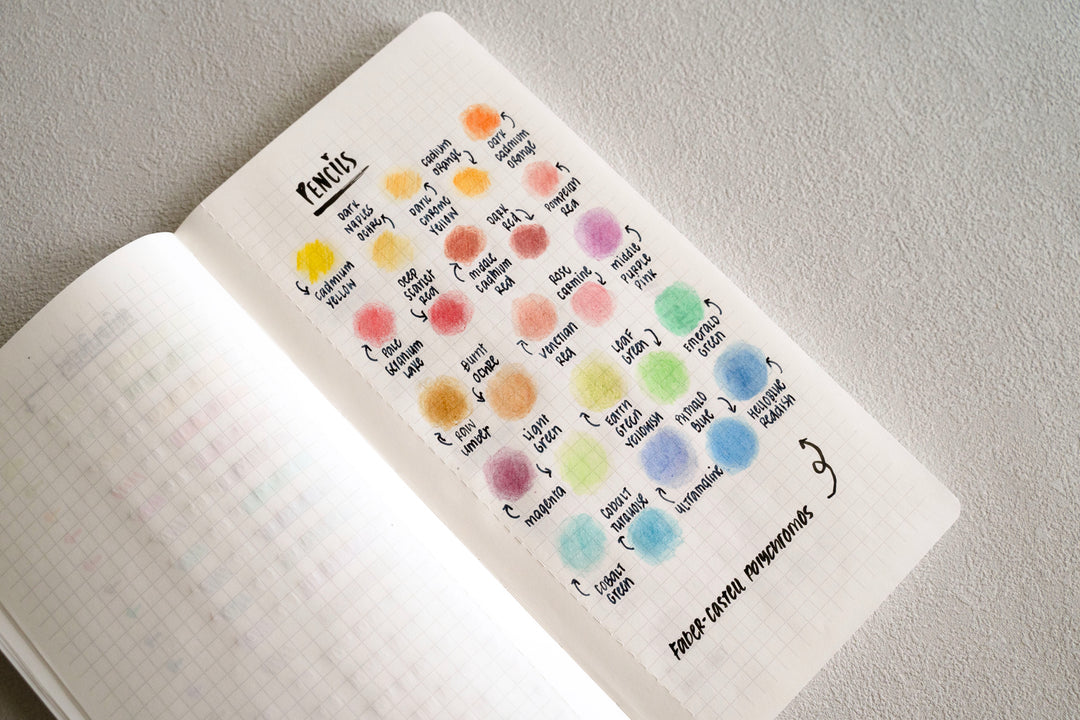 PENCILS
cadmium
yellow
DARK
NAPLES
OCHRE
DARK
CHROME
YELLOW
cadium
orange
DARK
cadmium
orange
DEEP
scarlet
red
middle
cadmium
red
DARK
red
POMPEIAN
red
PALE
GERANIUM
LAKE
VENETIAN
red
ROSE
carmine
middle
PURPLE
PINK
RAW
umber
BURNT
OCHRE
EARTH
Green
YELLOWISH
LEAF
Green
EMERALD
Green
magenta
LIGHT
Green
ULTRAMARINE
PHTHALO
BLUE
HELIOBLUE
REDDISH
COBALT
Green
COBALT
TURQUOISE
FABER-CASTELL POLYCHROMOS